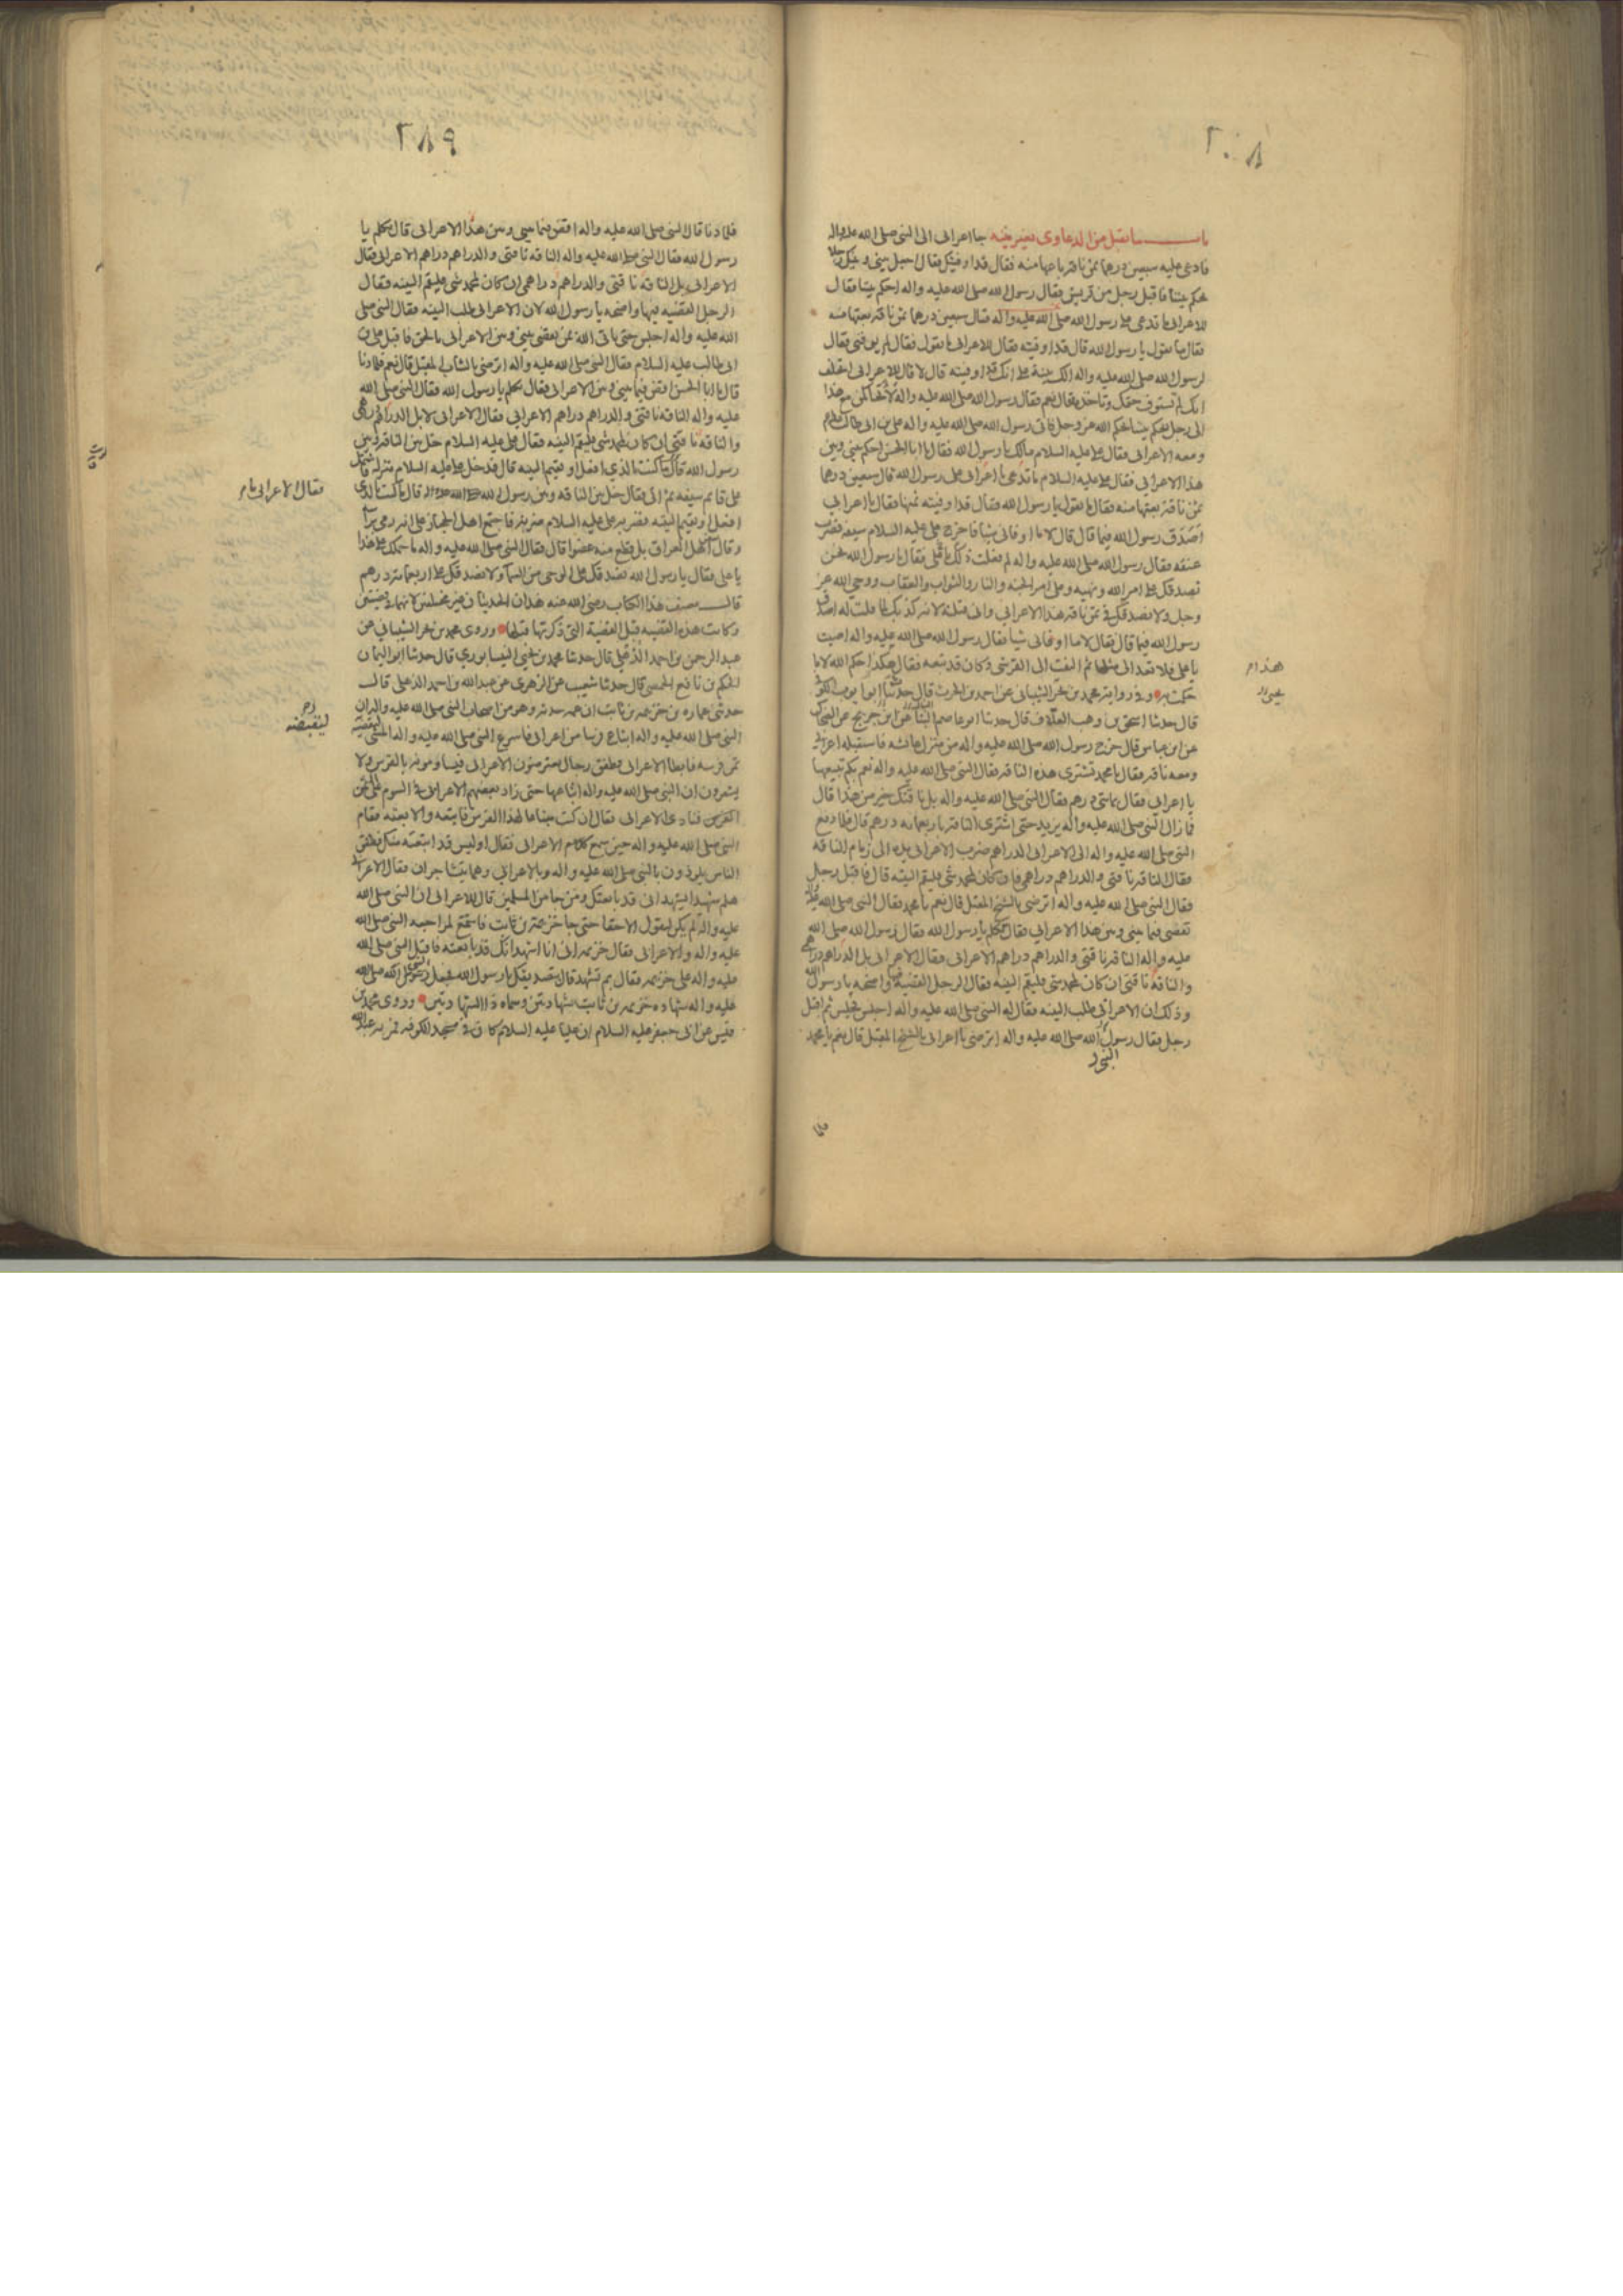 ٢٠٨
بـاب ما يقبل من الدعاوى بغير بينه جا اعرابى الى النبى صلى الله عليه واله
فادعى عليه سبعين درهما ثمن ناقة باعها منه فقال قد اوفيتك فقال اجعل بينى وبينك رجلا
يحكم بيننا فاقبل رجل من قريش فقال رسول الله صلى الله عليه واله احكم بيننا فقال
للاعرابى ما تدعى على رسول الله صلى الله عليه واله قال سبعين درهما ثمن ناقة بعتها منه
فقال ما تقول يا رسول الله قال قد اوفيته فقال للاعرابى ما تقول فقال لم يوفنى فقال
لرسول الله صلى الله عليه واله الك بينة على انك قد اوفيته قال لا قال للاعرابى اتحلف
انك لم تستوف حقك وتاخذه فقال نعم فقال رسول الله صلى الله عليه واله لاتحاكمن مع هذا
الى رجل يحكم بيننا بحكم الله عز وجل فاتى رسول الله صلى الله عليه واله على بن ابى طالب
ومعه الاعرابى فقال على عليه السلام مالك يا رسول الله فقال يا ابا الحسن احكم بينى وبين
هذا الاعرابى فقال على عليه السلام يا اعرابى ما تدعى على رسول الله قال سبعين درهما
ثمن ناقة بعتها منه فقال ما تقول يا رسول الله فقال قد اوفيته ثمنها فقال يا اعرابى
اصدق رسول الله فيما قال قال لا ما اوفانى شيا فاخرج على عليه السلام سيفه فضرب
عنقه فقال رسول الله صلى الله عليه واله لم فعلت ذلك يا على فقال يا رسول الله نحن
نصدقك على امر الله ونهيه وعلى امر الجنه والنار والثواب والعقاب ووحى الله عز
وجل ولا نصدقك فى ثمن ناقة هذا الاعرابى وانى قتلته لانه كذبك لما قلت له اصدق
رسول الله فيما قال فقال لا ما اوفانى شيا فقال رسول الله صلى الله عليه واله اصبت
يا على فلا تعد الى مثلها ثم التفت الى القرشى وكان قد تبعه فقال هكذا حكم الله لا ما
حكمت به وفى رواية محمد بن بحر الشيبانى عن احمد بن الحرث قال حدثنا ابو ايوب الكوفى
قال حدثنا اسحق بن وهب العلاف قال حدثنا ابو عاصم النبال عن ابن جريج عن الضحاك
عن ابن عباس قال خرج رسول الله صلى الله عليه واله من منزل عائشه فاستقبله اعرابى
ومعه ناقه فقال يا محمد تشترى هذه الناقه فقال النبى صلى الله عليه واله نعم بكم تبيعها
يا اعرابى فقال بمائتى درهم فقال النبى صلى الله عليه واله بل ناقتك خير من هذا قال
فما زال النبى صلى الله عليه واله يزيد حتى اشترى الناقه باربعمائه درهم قال فلما دفع
النبى صلى الله عليه واله الى الاعرابى الدراهم ضرب الاعرابى يده الى زمام الناقه
فقال الناقه ناقتى والدراهم دراهمى فان كان لمحمد شى فليقم البينه قال فاقبل رجل
فقال النبى صلى الله عليه واله اترضى بالشيخ المقبل قال نعم يا محمد فقال النبى صلى الله عليه واله
تقضى فيما بينى وبين هذا الاعرابى فقال تكلم يا رسول الله فقال رسول الله صلى الله
عليه واله الناقه ناقتى والدراهم دراهم الاعرابى فقال الاعرابى بل الدراهم دراهمى
والناقه ناقتى ان كان لمحمد شى فليقم البينه فقال الرجل القضية فيها واضحه يا رسول الله
وذلك ان الاعرابى طلب البينه فقال له النبى صلى الله عليه واله اجلس فجلس ثم اقبل
رجل فقال رسول الله صلى الله عليه واله اترضى يا اعرابى بالشيخ المقبل قال نعم يا محمد
النبى
هذا م
٢٨٩
فلما دنا قال النبى صلى الله عليه واله اقض فيما بينى وبين هذا الاعرابى قال تكلم يا
رسول الله فقال النبى صلى الله عليه واله الناقه ناقتى والدراهم دراهم الاعرابى فقال
الاعرابى بل الناقه ناقتى والدراهم دراهمى ان كان لمحمد شى فليقم البينه فقال
الرجل القضيه فيها واضحه يا رسول الله لان الاعرابى طلب البينه فقال النبى صلى
الله عليه واله اجلس حتى ياتى الله بمن يقضى بينى وبين الاعرابى بالحق فاقبل على بن
ابى طالب عليه السلام فقال النبى صلى الله عليه واله اترضى بالشاب المقبل قال نعم فلما دنا
قال يا ابا الحسن اقض فيما بينى وبين الاعرابى فقال تكلم يا رسول الله فقال النبى صلى الله
عليه واله الناقه ناقتى والدراهم دراهم الاعرابى فقال الاعرابى لا بل الدراهم دراهمى
والناقه ناقتى ان كان لمحمد شى فليقم البينه فقال على عليه السلام خل بين الناقه وبين
رسول الله فقال ما كنت بالذى افعل او يقيم البينه قال فدخل على عليه السلام منزله فاشتمل
على قائم سيفه ثم اتى فقال خل بين الناقه وبين رسول الله صلى الله عليه واله قال ما كنت بالذى
افعل او يقيم البينه فضربه على عليه السلام ضربة فاجتمع اهل الحجاز على انه رمى براسه
وقال اهل العراق بل قطع منه عضوا قال فقال النبى صلى الله عليه واله ما حملك على هذا
يا على فقال يا رسول الله نصدقك على الوحى من السما ولا نصدقك على اربعمائة درهم
قال مصنف هذا الكتاب رضى الله عنه هذان الحديثان غير مختلفين لانهما فى قضيتين
وكانت هذه القضيه قبل القضية التى ذكرتها قبلها وروى محمد بن بحر الشيبانى عن
عبد الرحمن بن احمد الذهلى قال حدثنا محمد بن يحيى النيسابورى قال حدثنا ابو اليمان
الحكم بن نافع الحمصى قال حدثنا شعيب عن الزهرى عن عبد الله بن احمد الذهلى قال
حدثنى عماره بن خزيمه بن ثابت ان عمه حدثه وهو من اصحاب النبى صلى الله عليه واله ان
النبى صلى الله عليه واله ابتاع فرسا من اعرابى فاسرع النبى صلى الله عليه واله المشى ليقضيه
ثمن فرسه فابطا الاعرابى فطفق رجال يعترضون الاعرابى فيساومونه بالفرس ولا
يشعرون ان النبى صلى الله عليه واله ابتاعها حتى زاد بعضهم الاعرابى فى السوم على ثمن
الفرس فنادى الاعرابى فقال ان كنت مبتاعا لهذا الفرس فابتعه والا بعته فقام
النبى صلى الله عليه واله حين سمع كلام الاعرابى فقال اوليس قد ابتعته منك فطفق
الناس يلوذون بالنبى صلى الله عليه واله وبالاعرابى وهما يتشاجران فقال الاعرابى
هلم شهيدا يشهد انى قد بايعتك ومن جا من المسلمين قال للاعرابى ان النبى صلى الله
عليه واله لم يكن ليقول الا حقا حتى جا خزيمة بن ثابت فاستمع لمراجعه النبى صلى الله
عليه واله والاعرابى فقال خزيمه انى انا اشهد انك قد بايعته فاقبل النبى صلى الله
عليه واله على خزيمه فقال بم تشهد قال بتصديقك يا رسول الله فجعل رسول الله صلى الله
عليه واله شهاده خزيمه بن ثابت شهادتين وسماه ذا الشهادتين وروى محمد بن
قيس عن ابى جعفر عليه السلام ان عليا عليه السلام كان فى مسجد الكوفه فمر به عبد الله
فقال الاعرابى ما م
ليقبضه